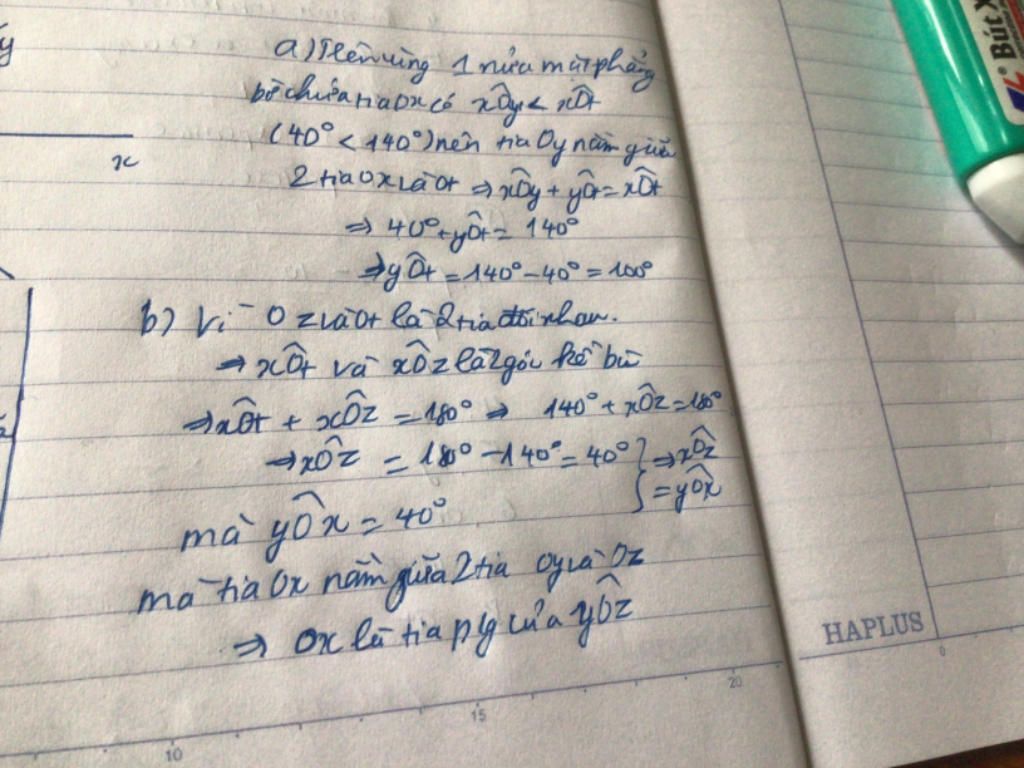 a) Trên cùng 1 nửa mặt phẳng
bờ chứa tia Ox có xÔy < xÔt
(40° < 140°) nên tia Oy nằm giữa
x
2 tia Ox và Ot ⇒ xÔy + yÔt = xÔt
⇒ 40° + yÔt = 140°
⇒ yÔt = 140° - 40° = 100°
b) Vì Oz và Ot là 2 tia đối nhau.
⇒ xÔt và xÔz là 2 góc kề bù
⇒ xÔt + xÔz = 180° ⇒ 140° + xÔz = 180°
⇒ xÔz = 180° - 140° = 40° } ⇒ xÔz
= yÔx
mà yÔx = 40°
mà tia Ox nằm giữa 2 tia Oy và Oz
⇒ Ox là tia p/g của yÔz
HAPLUS
0
10 15 20
Bút X